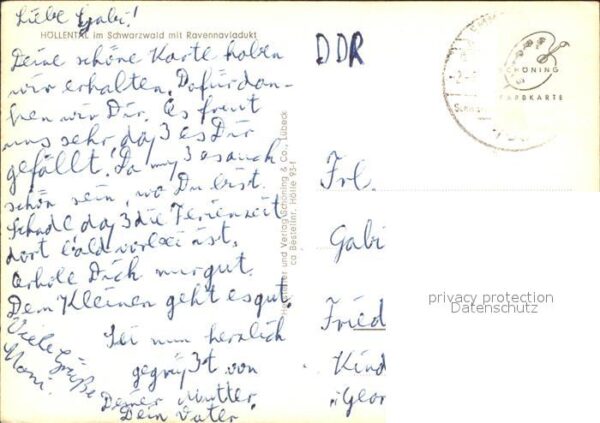 Liebe Gabi!
HÖLLENTAL im Schwarzwald mit Ravennaviadukt
Deine schöne Karte haben
wir erhalten. Dafür dan-
ken wir Dir. Es freut
uns sehr daß es Dir
gefällt. Da muß es auch
schön sein, wo Du bist.
Schade daß die Ferienzeit
dort bald vorbei ist.
Erhole Dich nur gut.
Dem Kleinen geht es gut.
Sei nun herzlich
gegrüßt von
Deiner Mutter.
Dein Vater
Viele Grüße
und Verlag Schöning & Co., Lübeck
DDR
SCHÖNING
FARBKARTE
Frl.
Gabi
Fried
Kind
"Geor
privacy protection
Datenschutz